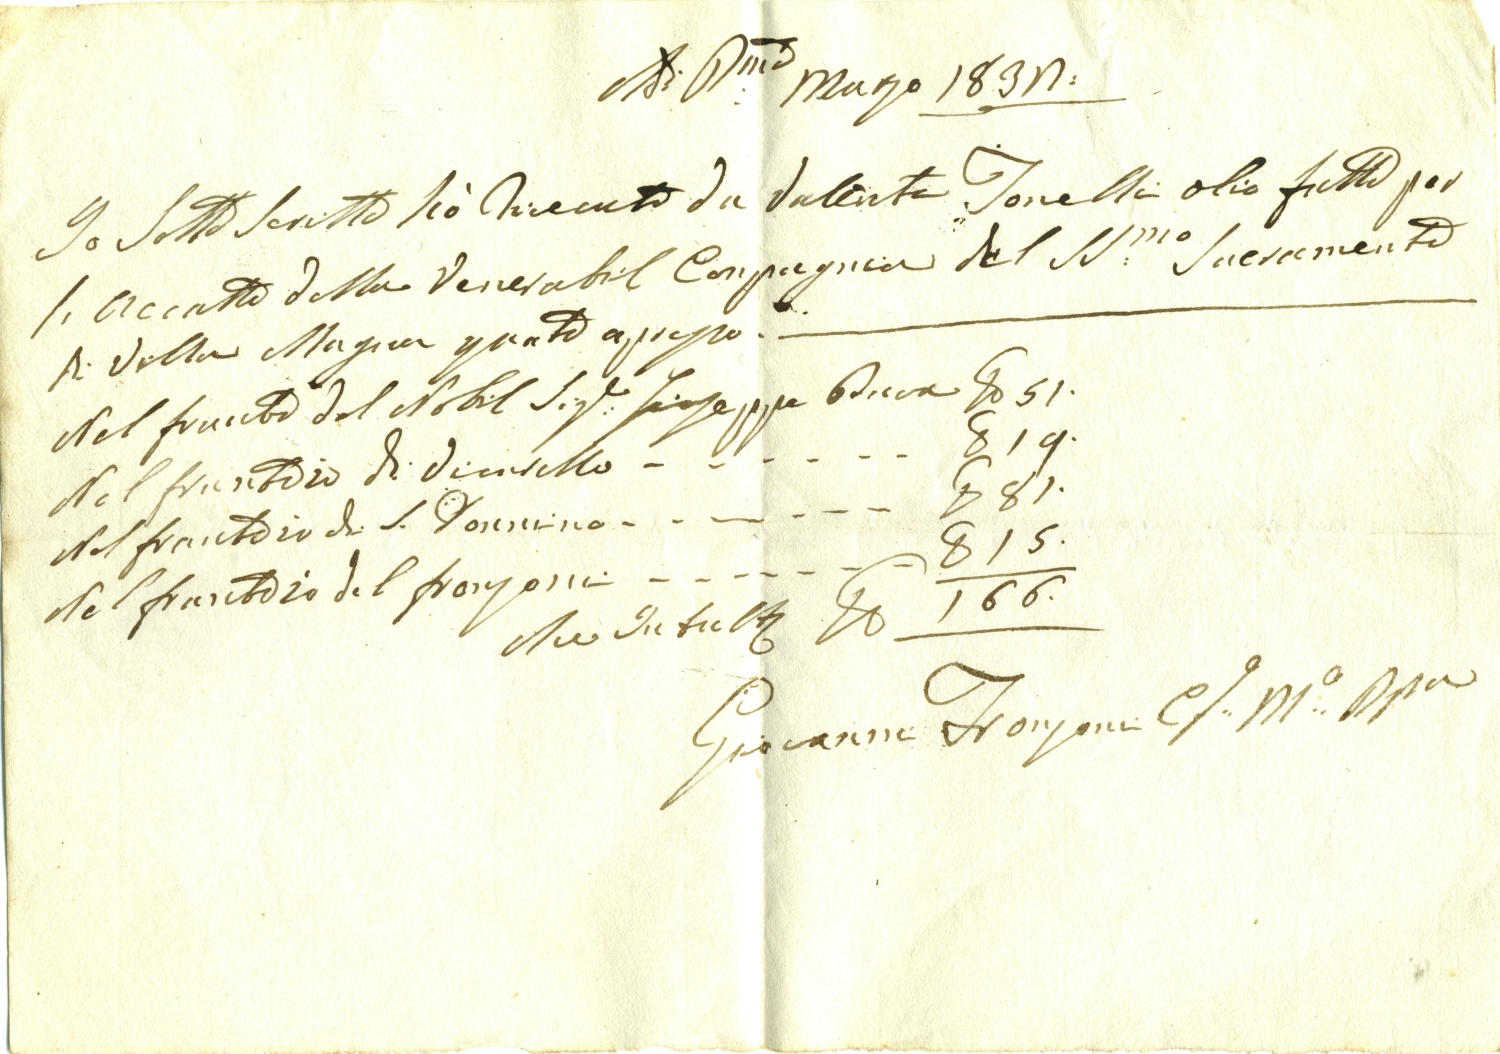 Adì P.mo Marzo 1831:
Io Sotto Scritto hò Riceuto da Valente Tonelli olio fatto per
l'Accatto della Venerabil Compagnia del SS.mo Sacramento
di Vella Magna quato apreso.
Nel franto del Nobil Sig.e Giuseppe 51.
Nel frantoio di 19.
Nel frantoio di S. Donnino 81.
Nel frantoio del fronzoni 15.
166.
Giovanni Fronzoni M.o